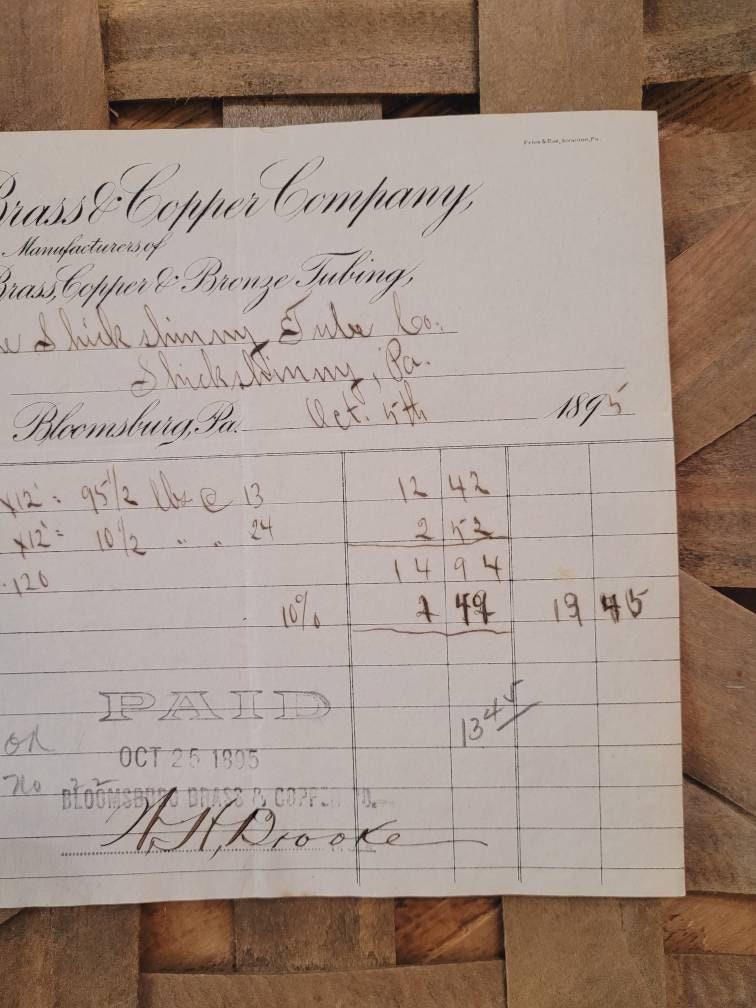 Brass & Copper Company,
Manufacturers of
Brass, Copper & Bronze Tubing,
Shickshinny Tube Co.
Shickshinny, Pa.
Bloomsburg, Pa. Oct. 5th 1895
x12' = 95 1/2 lbs @ 13 12 42
x12' = 10 1/2 " " 24 2 52
120 14 94
10% 1 49 13 45
PAID
13 45
OCT 25 1895
No
BLOOMSBURG BRASS & COPPER CO.
W. H. Brooke